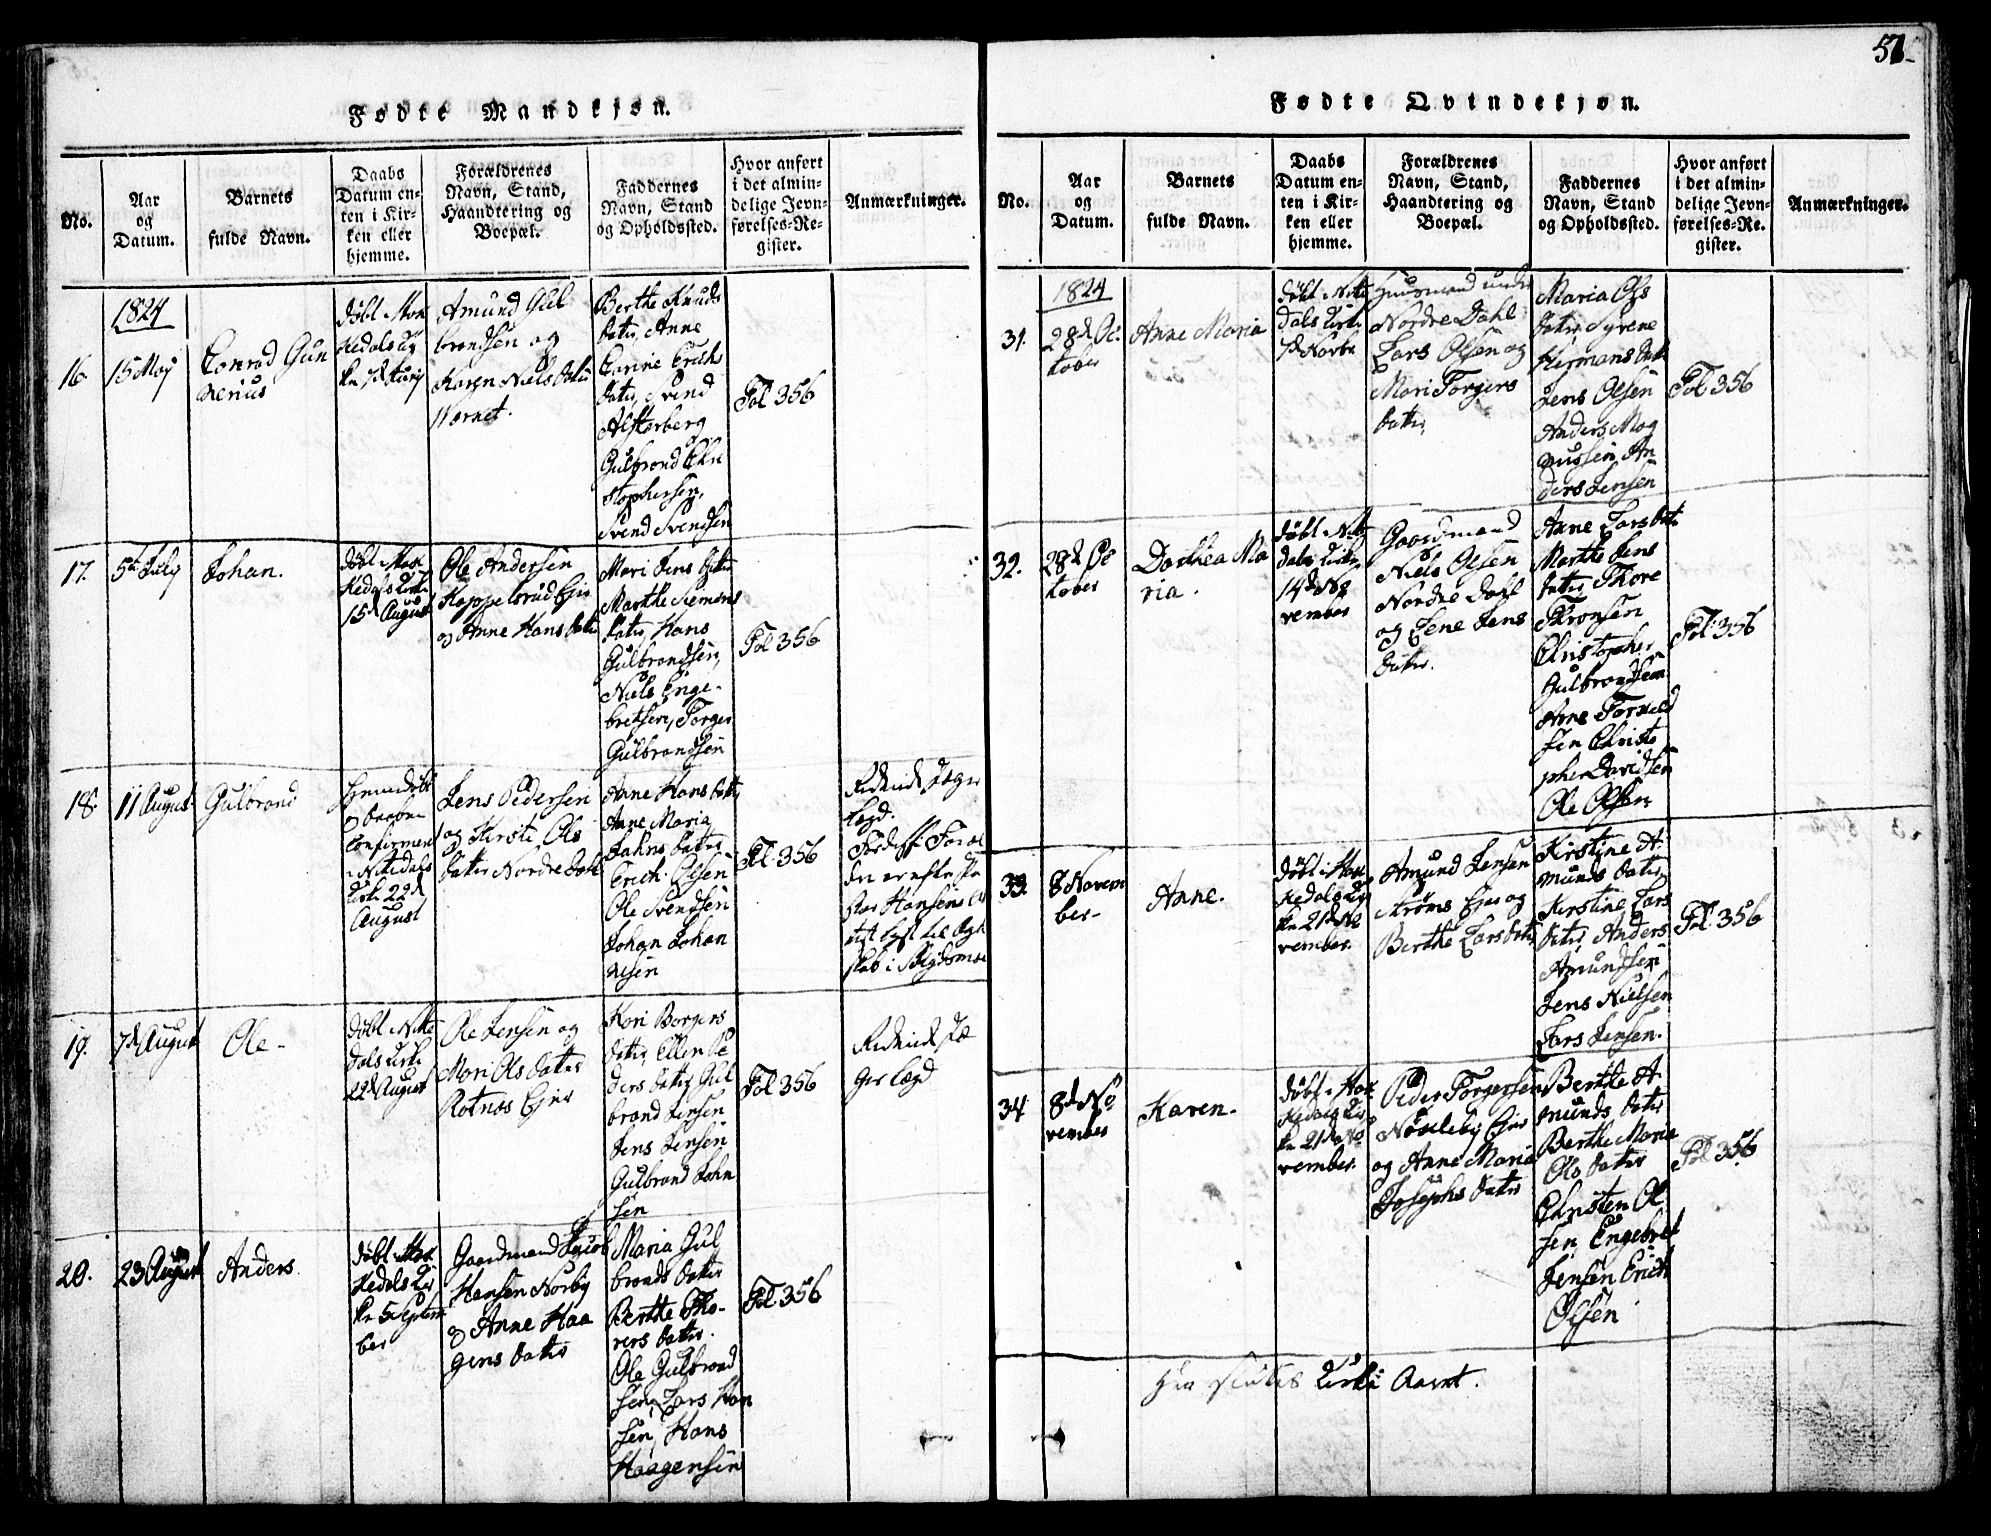 51
Fødte Mandkjøn.
No.
Aar
og
Datum.
Barnets
fulde Navn.
Daabs
Datum en-
ten i Kir-
ken eller
hjemme.
Forældrenes
Navn, Stand,
Haandtering og
Boepæl.
Faddernes
Navn, Stand
og Opholdssted.
Hvor anført
i det almin-
delige Jevn-
førelses-Re-
gister.
Anmærkninger.
1824
16
15 Maj
Conrad Gun
nerius
døbt i
Amund Gul
brandsen og
Karen Niels datter
Berthe Knuds
datter, Anne
Carine Erichs
datter, Svend
Alsterberg
Gulbrand Chri
stophersen,
Svend Svendsen
Fol 356
17.
5te July
Johan.
døbt i
15d August
Ole Andersen
Kappelsrud Ejer
og Anne Hans datter
Mari Jens datter
Marthe Siemens
datter, Hans
Gulbrandsen,
Niels Enge-
bretsen, Torger
Gulbrandsen
Fol 356
18.
11 August
Gulbrand
hjemmedøbt
confirmeret
i Nitedals
Kirke 22d
August
Jens Pedersen
og Kirste Ols
datter Nordre Dahl
Anne Hans datter
Anne Maria
Jahns datter
Erich Olsen
Ole Svendsen
Johan Johan
nesen
Fol. 356
19.
7d August
Ole -
døbt i Nitte
dals Kirke
22d August
Ole Jensen og
Mari Ols datter
Rotnæs Ejer
Kari Borgers
datter, Ellen Pe
ders datter, Gul
brand Jensen
Jens Jensen
Gulbrand John
sen
Fol 356
20.
23 August
Anders.
døbt i
5 Septem
ber
Gaardmand Jacob
Hansen Norby
og Anne Haa
gens datter
Maria Gul
brands datter
Berthe Tho-
rers datter.
Ole Gulbrand
sen, Lars Han
sen, Hans
Haagensen
Fol. 356
Fødte Qvindekjøn.
No.
Aar
og
Datum.
Barnets
fulde Navn.
Daabs
Datum en-
ten i Kir-
ken eller
hjemme.
Forældrenes
Navn, Stand,
Haandtering og
Boepæl.
Faddernes
Navn, Stand
og Opholdssted.
Hvor anført
i det almin-
delige Jevn-
førelses-Re-
gister.
Anmærkninger.
1824
31.
28d Oc
tober
Anne Maria
døbt i Nitte
dals Kirke
7d Novbr
Huusmand under
Nordre Dahl
Lars Olsen og
Mari Torgers
datter,
Maria Ols
datter, Syrene
Hermans datter
Jens Olsen
Anders Mag
nussen, An
ders Jensen
Fol 356
32.
28d Oc
tober
Dorthea Ma
ria.
døbt i Nitte
dals Kirke
14d No
vember
Gaardmand
Niels Olsen
Nordre Dahl
og Lene Jens
datter.
Anne Lars datter
Marthe Jens
datter, Thore
Thronsen
Christopher
Gulbrandsen
Christo
pher Davidsen
Ole Olsen
Fol: 356
33.
8 Novem
ber-
Anne.
døbt i
21d No
vember.
Amund Jensen
Strøms Ejer og
Berthe Lars datter
Kirstine A
munds datter
Kirstine Lars
datter, Anders
Amundsen
Jens Nielsen
Lars Jensen.
Fol. 356
34
8d No
vember
Karen.
døbt i
21d No
vember.
Peder Torgersen
Nøsleby Ejer
og Anne Maria
Josephs datter
Berthe A
munds datter
Berthe Marie
Ols datter
Christen Ol
sen Engebret
Jensen Erich
Olsen
Fol 356
Her sluttes Kirke Aaret.